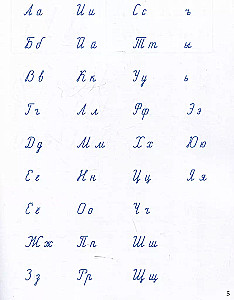 А а И и С с ъ
Б б Й й Т т ы
В в К к У у ь
Г г Л л Ф ф Э э
Д д М м Х х Ю ю
Е е Н н Ц ц Я я
Ё ё О о Ч ч
Ж ж П п Ш ш
З з Р р Щ щ
5